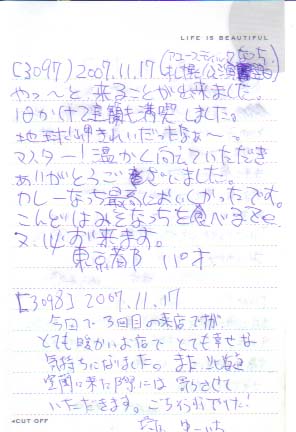 LIFE IS BEAUTIFUL
[3097] 2007.11.17
やっ〜と来ることが出来ました。
1日かけて室蘭も満喫しました。
地球岬きれいだったなぁ〜。
マスター!温かく向えていただき
ありがとうございました。
カレーなっち最高においしかったです。
こんどはみそなっちを食べまるぞ
又、必ず来ます。
東京都
[3098] 2007.11.17
今回で3回目の来店ですが
とても暖かいお店でとても幸せな
気持ちになりました。また北海道
室蘭に来た際には寄らさせて
いただきます。ごちそうさまでした!
◂CUT OFF